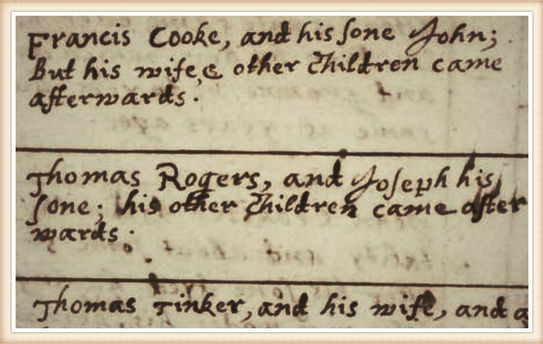 Francis Cooke, and his sone John;
But his wife, & other children came
afterwards.
Thomas Rogers, and Joseph his
sone; his other children came after
wards.
Thomas Tinker, and his wife, and a